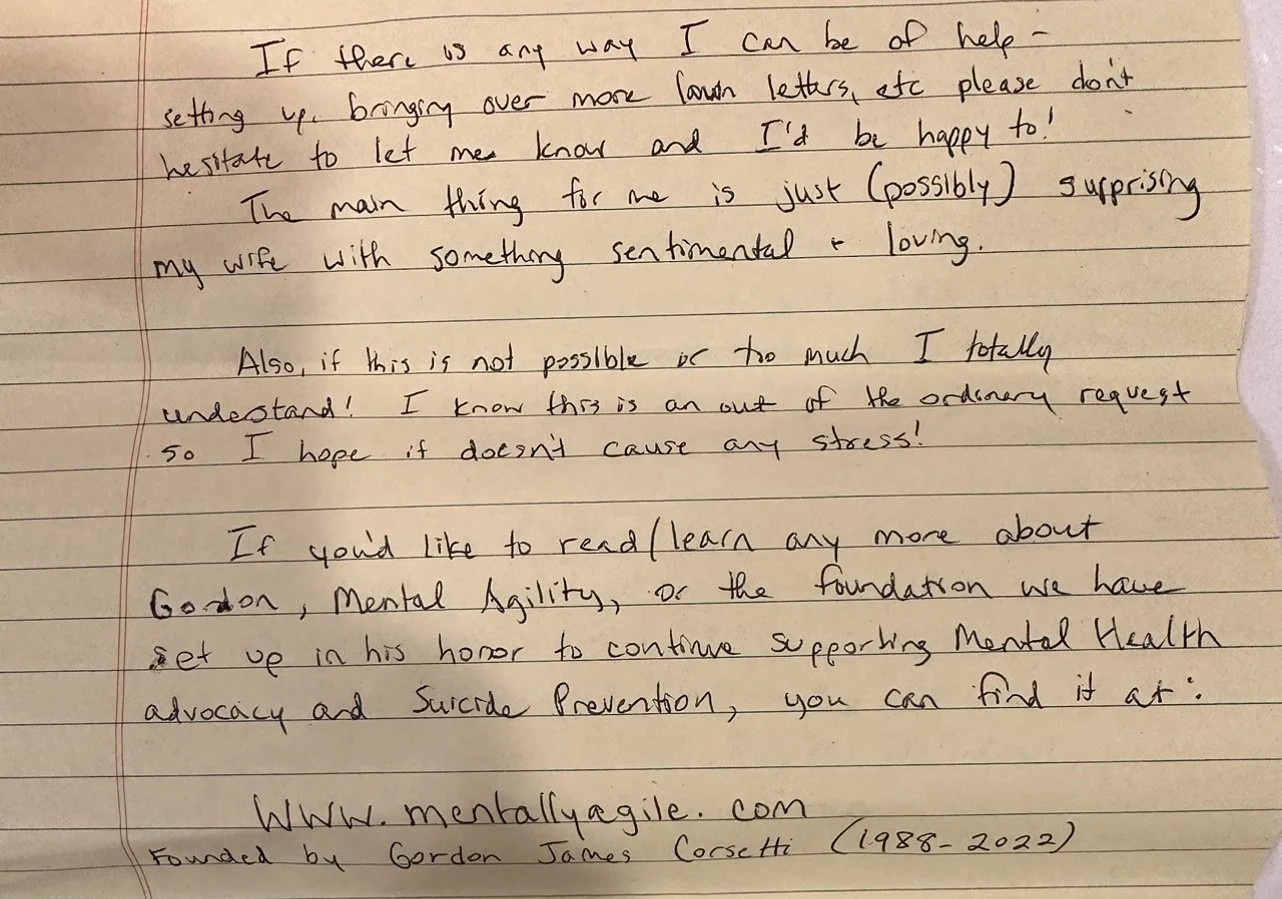 If there is any way I can be of help -
setting up, bringing over more lawn letters, etc please don't
hesitate to let me know and I'd be happy to!
The main thing for me is just (possibly) surprising
my wife with something sentimental + loving.
Also, if this is not possible or too much I totally
understand! I know this is an out of the ordinary request
so I hope it doesn't cause any stress!
If you'd like to read/learn any more about
Gordon, Mental Agility, or the foundation we have
set up in his honor to continue supporting Mental Health
advocacy and Suicide Prevention, you can find it at:
www.mentallyagile.com
Founded by Gordon James Corsetti (1988-2022)